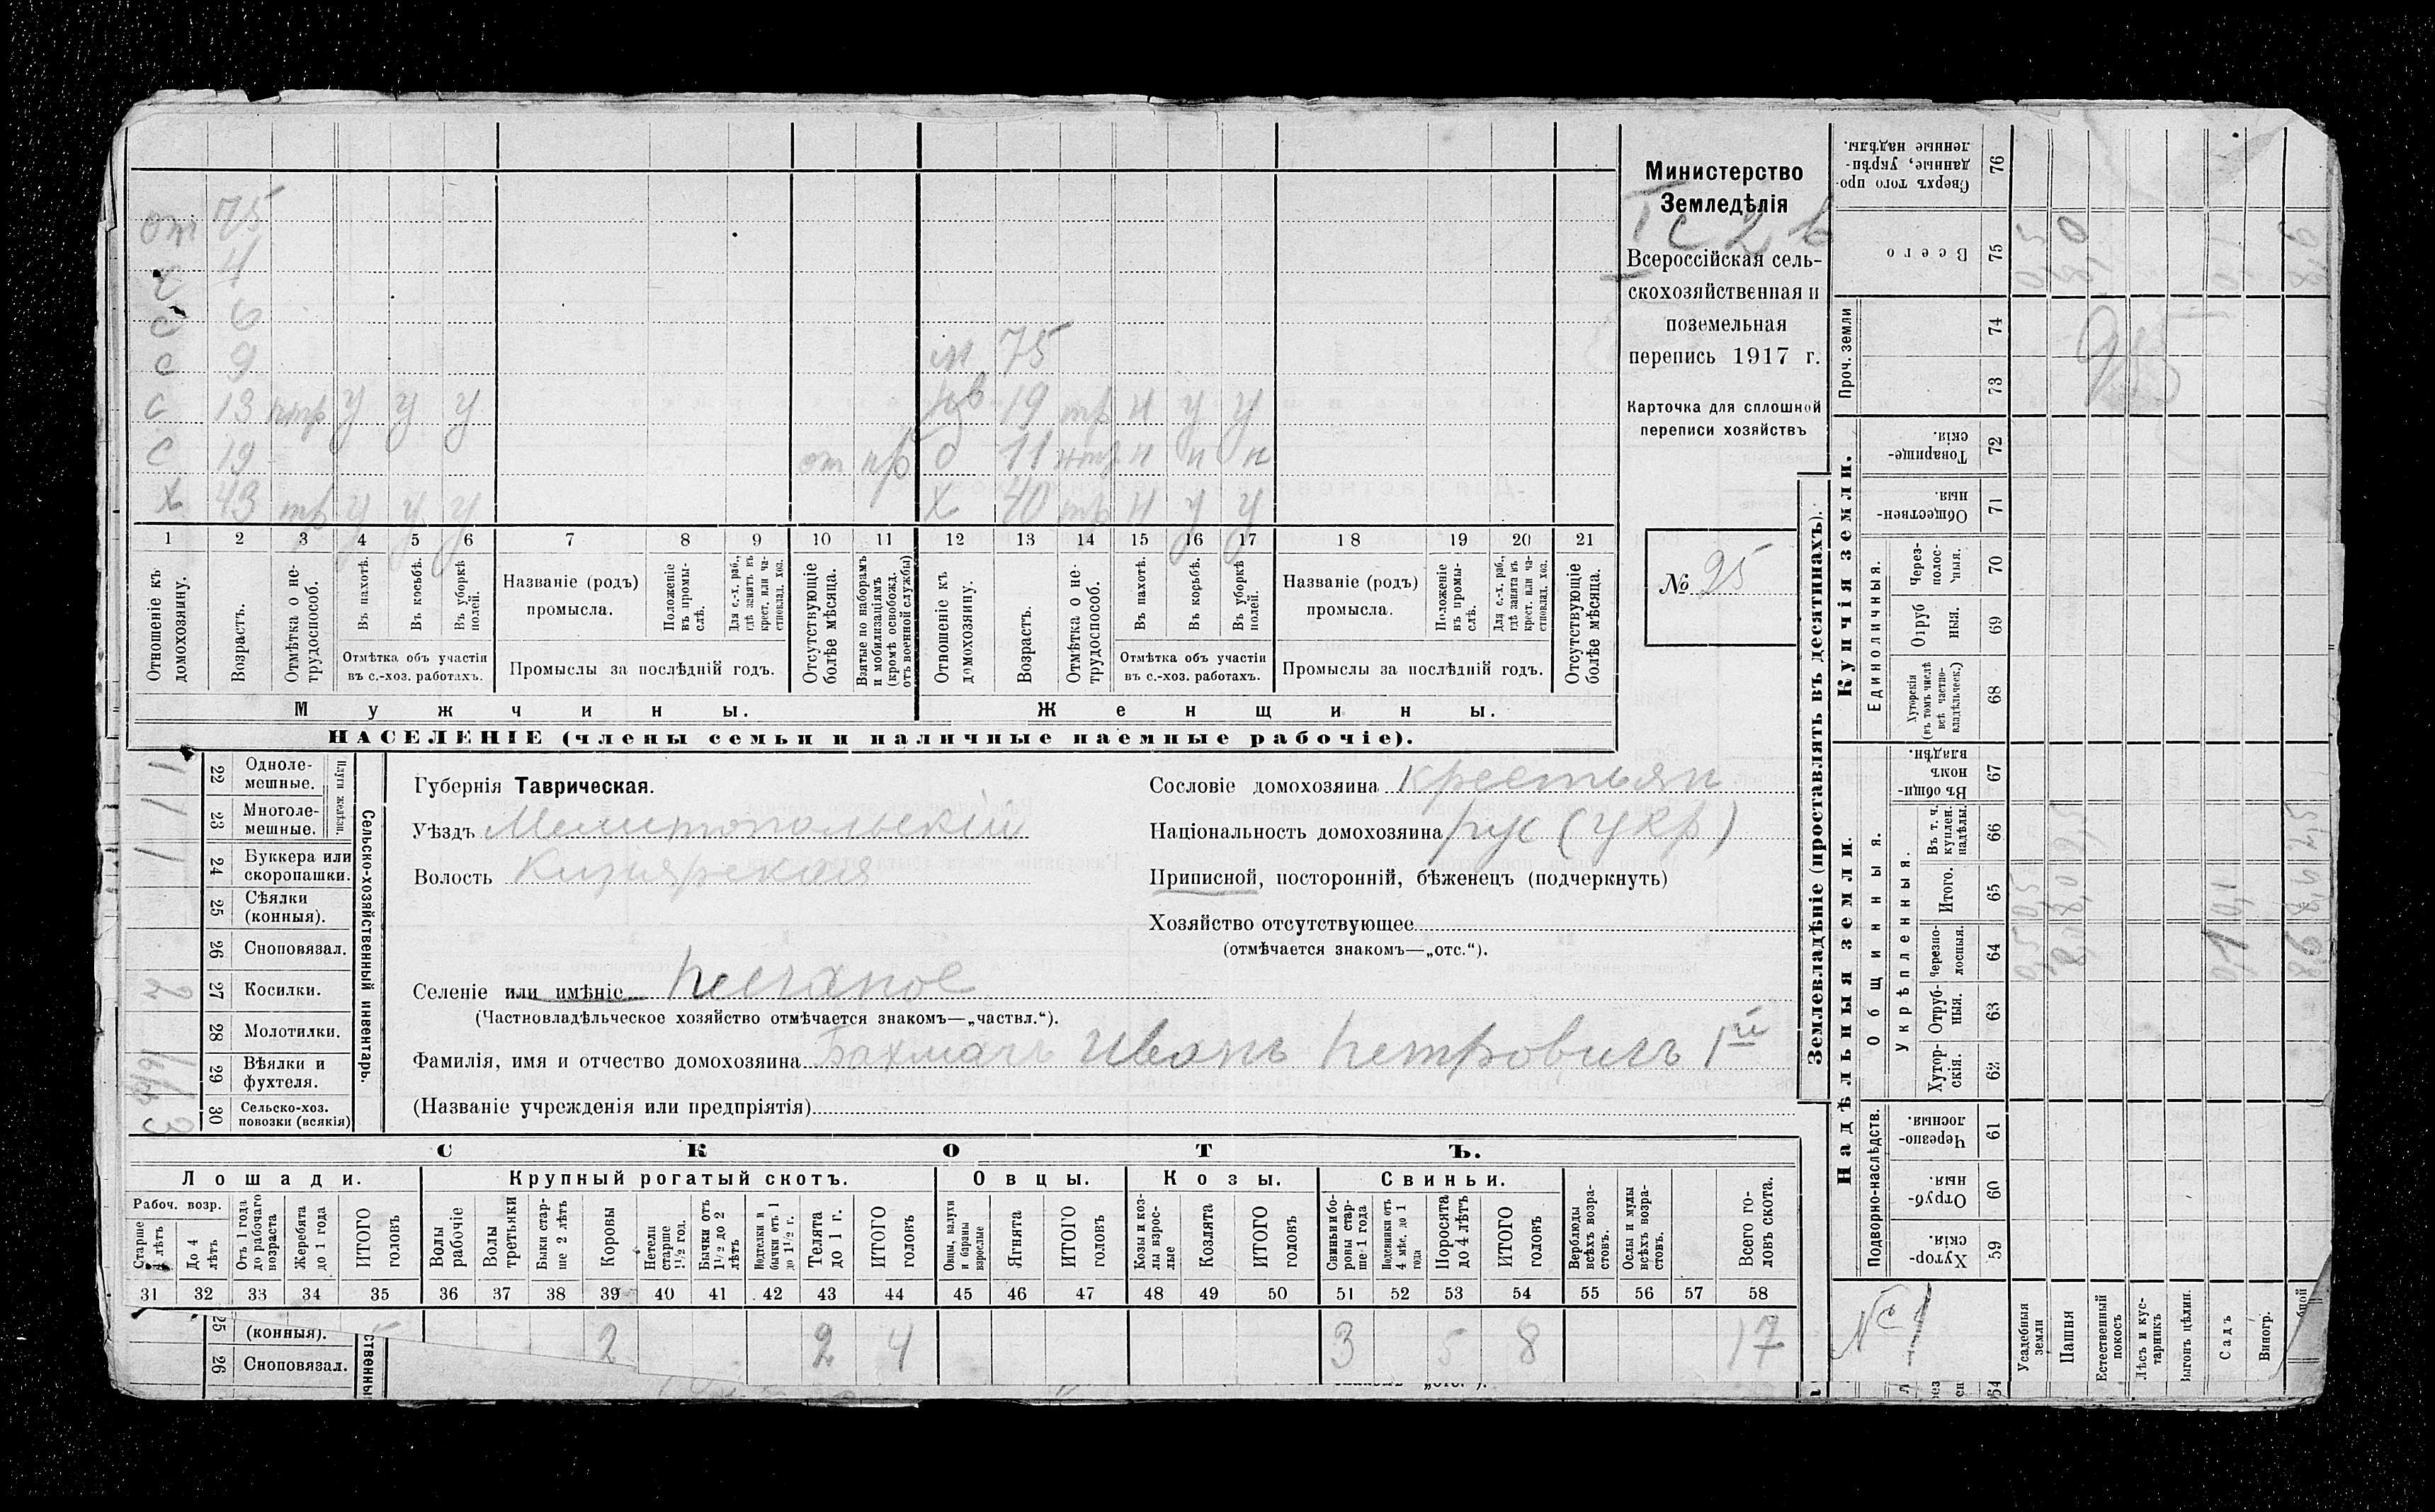 от 75
с 4
с 6
с 9 м 75
с 13 нтр у у у нв 19 тр н у у
с 19 от пр д 11 нтр н н н
х 43 тр у у у х 40 тр н у у
1 2 3 4 5 6 7 8 9 10 11 12 13 14 15 16 17 18 19 20 21
Отношеніе къ домохозяину.
Возрастъ.
Отмѣтка о нетрудоспособ.
Въ пахотѣ.
Въ косьбѣ.
Въ уборкѣ полей.
Отмѣтка объ участіи
въ с.-хоз. работахъ.
Названіе (родъ)
промысла.
Положеніе въ промыслѣ.
Для с.-х. раб., гдѣ занятъ въ крест. или частновлад. хоз.
Промыслы за послѣдній годъ.
Отсутствующіе болѣе мѣсяца.
Взятые по наборамъ и мобилизаціямъ (кромѣ освобожд. отъ военной службы)
Отношеніе къ домохозяину.
Возрастъ.
Отмѣтка о нетрудоспособ.
Въ пахотѣ.
Въ косьбѣ.
Въ уборкѣ полей.
Отмѣтка объ участіи
въ с.-хоз. работахъ.
Названіе (родъ)
промысла.
Положеніе въ промыслѣ.
Для с.-х. раб., гдѣ занята въ крест. или частновлад. хоз.
Промыслы за послѣдній годъ.
Отсутствующіе болѣе мѣсяца.
Мужчины. Женщины.
НАСЕЛЕНІЕ (члены семьи и наличные наемные рабочіе).
Министерство
Земледѣлія
Всероссійская сель-
скохозяйственная и
поземельная
перепись 1917 г.
Карточка для сплошной
переписи хозяйствъ
№ 95
Губернія Таврическая.
Уѣздъ Мелитопольскій
Волость Кизіярская
Сословіе домохозяина крестьян
Національность домохозяина рус (укр)
Приписной, посторонній, бѣженецъ (подчеркнуть)
Хозяйство отсутствующее
(отмѣчается знакомъ—„отс.“).
Селеніе или имѣніе Песчаное
(Частновладѣльческое хозяйство отмѣчается знакомъ—„частвл.“).
Фамилія, имя и отчество домохозяина Бахмачъ Иванъ Петровичъ 1й
(Названіе учрежденія или предпріятія)
Сельско-хозяйственный инвентарь.
Плуги желѣзн.
22 Одноле-
мешные. 1
23 Многоле-
мешные. 1
24 Буккера или
скоропашки. 1
25 Сѣялки
(конныя).
26 Сноповязал.
27 Косилки. 2
28 Молотилки.
29 Вѣялки и
фухтеля.
30 Сельско-хоз.
повозки (всякія) 3
СКОТЪ.
Лошади. Крупный рогатый скотъ. Овцы. Козы. Свиньи.
Рабоч. возр.
Старше 4 лѣтъ
До 4 лѣтъ
Отъ 1 года до рабочаго возраста
Жеребята до 1 года
ИТОГО головъ
Волы рабочіе
Волы третьяки
Быки старше 2 лѣтъ
Коровы
Нетели старше 1½ год.
Бычки отъ 1½ до 2 лѣтъ
Подтелки и бычки отъ 1 до 1½ г.
Телята до 1 г.
ИТОГО головъ
Овцы, валухи и бараны взрослые
Ягнята
ИТОГО головъ
Козы и козлы взрослые
Козлята
ИТОГО головъ
Свиньи и боровы старше 1 года
Подсвинки отъ 4 мѣс. до 1 года
Поросята до 4 лѣтъ
ИТОГО головъ
Верблюды всѣхъ возрастовъ.
Ослы и мулы всѣхъ возрастовъ.
Всего головъ скота.
31 32 33 34 35 36 37 38 39 40 41 42 43 44 45 46 47 48 49 50 51 52 53 54 55 56 57 58
2 2 4 3 5 8 17
25 (конныя).
26 Сноповязал.
Землевладѣніе (проставлять въ десятинахъ).
Надѣльныя земли. Купчія земли.
Сверхъ того проданные, укрѣпленные надѣлы. 76
Всего 75
Проч. земли 74
73
Товарищескія. 72
Общественныя. 71
Единоличныя.
Черезполосныя. 70
Отрубныя. 69
Хуторскія (въ томъ числѣ всѣ частновладѣльческ.) 68
Въ общинномъ владѣн. 67
Общинныя.
Укрѣпленныя.
Въ т. ч. куплен. надѣлы. 66
Итого. 65
Черезполосныя. 64
Отрубныя. 63
Хуторскія. 62
Подворно-наслѣдств.
Черезполосныя. 61
Отрубныя. 60
Хуторскія. 59
№ 1
Усадебныя земли
Пашня
Естественный покосъ
Лѣсъ и кустарникъ
Выгонъ цѣлин.
Садъ
Виногр.